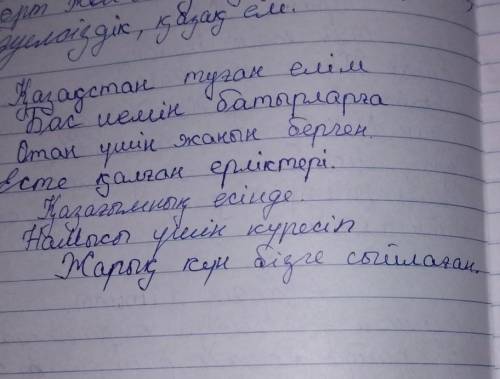 тәуелсіздік, қазақ ем.
Қазақстан туған елім
Бас иемін батырларға
Отан үшін жанын берген.
Есте қалған ерліктері.
Қазағымның есінде.
Намысы үшін күресіп
Жарық күн бізге сыйлаған.